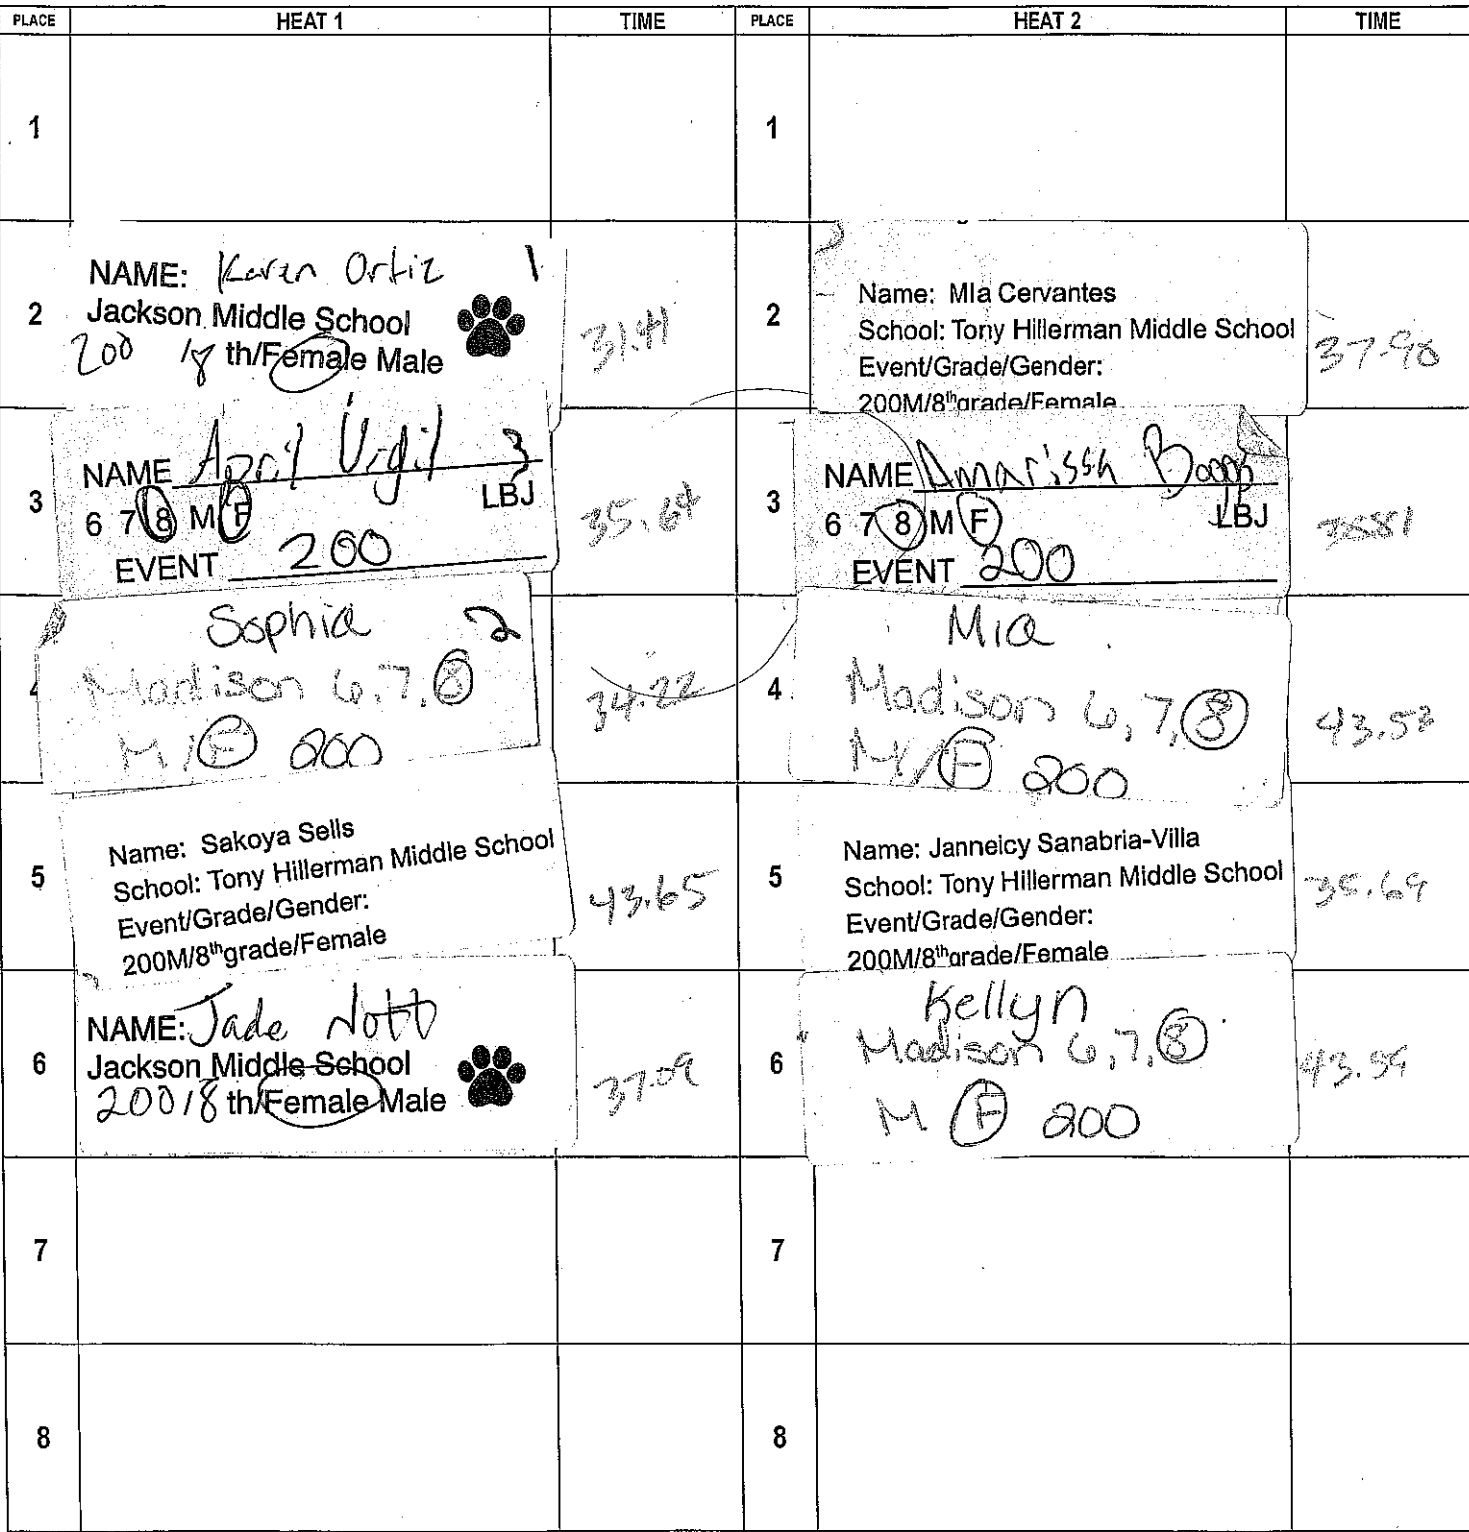 PLACE HEAT 1 TIME PLACE HEAT 2 TIME
1
1
2
NAME: Karen Ortiz 1
Jackson Middle School
200 /8 th/Female Male
31.41
2
Name: MIa Cervantes
School: Tony Hillerman Middle School
Event/Grade/Gender:
200M/8thgrade/Female
37.98
3
NAME April Virgil 3
6 7 8 M F LBJ
EVENT 200
35.64
3
NAME Amarissa
6 7 8 M F LBJ
EVENT 200
4
Sophia 2
Madison 6,7,8
M/F 200
34.22
4
Mia
Madison 6,7,8
M/F 200
43.53
5
Name: Sakoya Sells
School: Tony Hillerman Middle School
Event/Grade/Gender:
200M/8thgrade/Female
43.65
5
Name: Janneicy Sanabria-Villa
School: Tony Hillerman Middle School
Event/Grade/Gender:
200M/8thgrade/Female
35.69
6
NAME: Jade Nott
Jackson Middle School
200/8 th/Female Male
37.09
6
Kellyn
Madison 6,7,8
M F 200
43.59
7
7
8
8